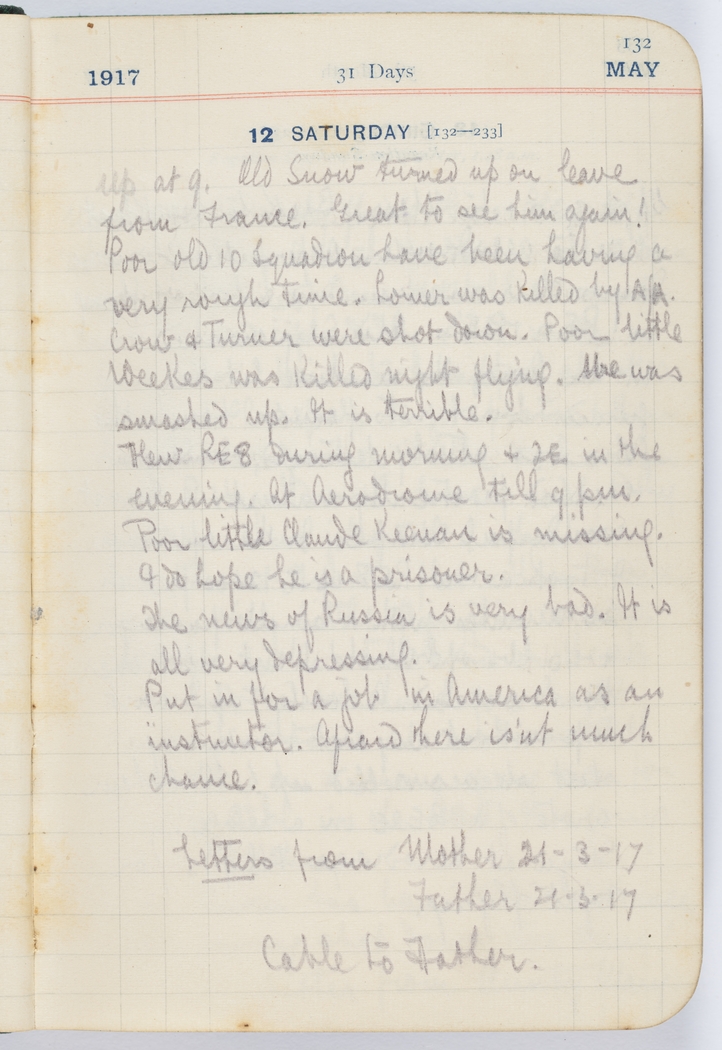 132
1917 31 Days MAY
12 SATURDAY [132—233]
up at 9. Old Snow turned up on leave
from France. Great to see him again!
Poor old 10 Squadron have been having a
very rough time. Lorner was killed by A/A.
Crow & Turner were shot down. Poor little
Weekes was killed night flying. He was
smashed up. It is terrible.
Flew RE8 during morning & 2E in the
evening. At Aerodrome till 9 pm.
Poor little Claude Keenan is missing.
I do hope he is a prisoner.
The news of Russia is very bad. It is
all very depressing.
Put in for a job in America as an
instructor. Afraid there is'nt much
chance.
Letters from Mother 21-3-17
Father 21-3-17
Cable to Father.